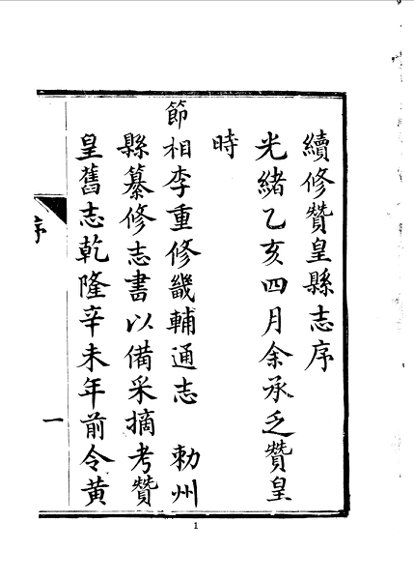 續修贊皇縣志序
光緒乙亥四月余承乏贊皇
時
節相李重修畿輔通志 勅州
縣纂修志書以備采摘考贊
皇舊志乾隆辛未年前令黃
序
一
1